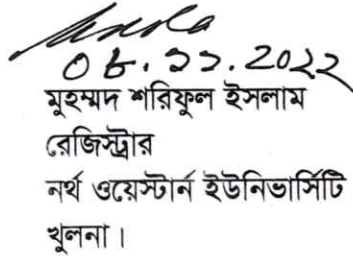 ০৮.১১.২০২২
মুহম্মদ শরিফুল ইসলাম
রেজিস্ট্রার
নর্থ ওয়েস্টার্ন ইউনিভার্সিটি
খুলনা।